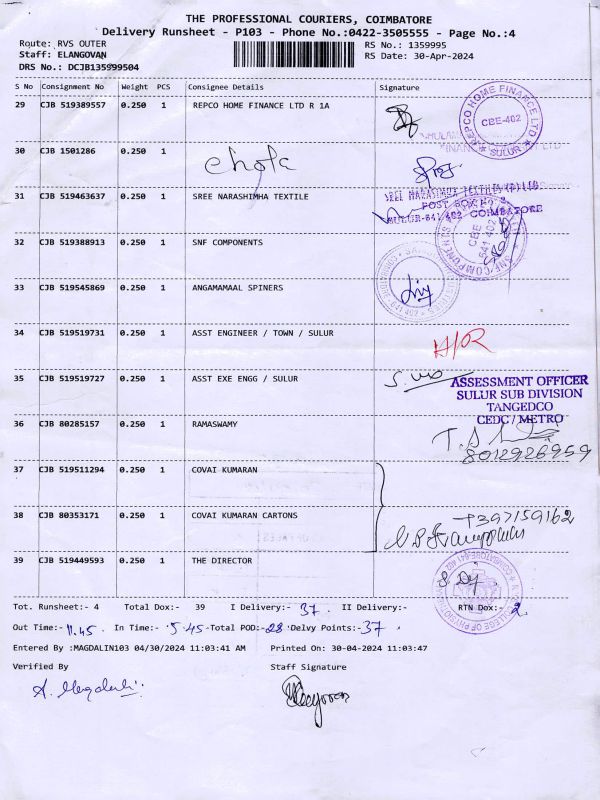 THE PROFESSIONAL COURIERS, COIMBATORE
Delivery Runsheet - P103 - Phone No.:0422-3505555 - Page No.:4
Route: RVS OUTER
RS No.: 1359995
Staff: ELANGOVAN
RS Date: 30-Apr-2024
DRS No.: DCJB135999504
S No Consignment No Weight PCS Consignee Details Signature
29 CJB 519389557 0.250 1 REPCO HOME FINANCE LTD R 1A
REPCO HOME FINANCE LTD
CBE-402
SULUR
30 CJB 1501286 0.250 1 chola
31 CJB 519463637 0.250 1 SREE NARASHIMHA TEXTILE
POST BOX
SULUR-641 402 COIMBATORE
32 CJB 519388913 0.250 1 SNF COMPONENTS
SNF COMPONENTS
CBE
641 402
33 CJB 519545869 0.250 1 ANGAMAMAAL SPINERS
34 CJB 519519731 0.250 1 ASST ENGINEER / TOWN / SULUR
35 CJB 519519727 0.250 1 ASST EXE ENGG / SULUR
ASSESSMENT OFFICER
SULUR SUB DIVISION
TANGEDCO
CEDC / METRO
36 CJB 80285157 0.250 1 RAMASWAMY
8012926959
37 CJB 519511294 0.250 1 COVAI KUMARAN
38 CJB 80353171 0.250 1 COVAI KUMARAN CARTONS
39 CJB 519449593 0.250 1 THE DIRECTOR
Tot. Runsheet:- 4 Total Dox:- 39 I Delivery:- 37 II Delivery:- RTN Dox:- 2
Out Time:- 11.45 In Time:- 5.45 Total POD:- 28 Delvy Points:- 37
Entered By :MAGDALIN103 04/30/2024 11:03:41 AM Printed On: 30-04-2024 11:03:47
Verified By Staff Signature
A. Magdalin